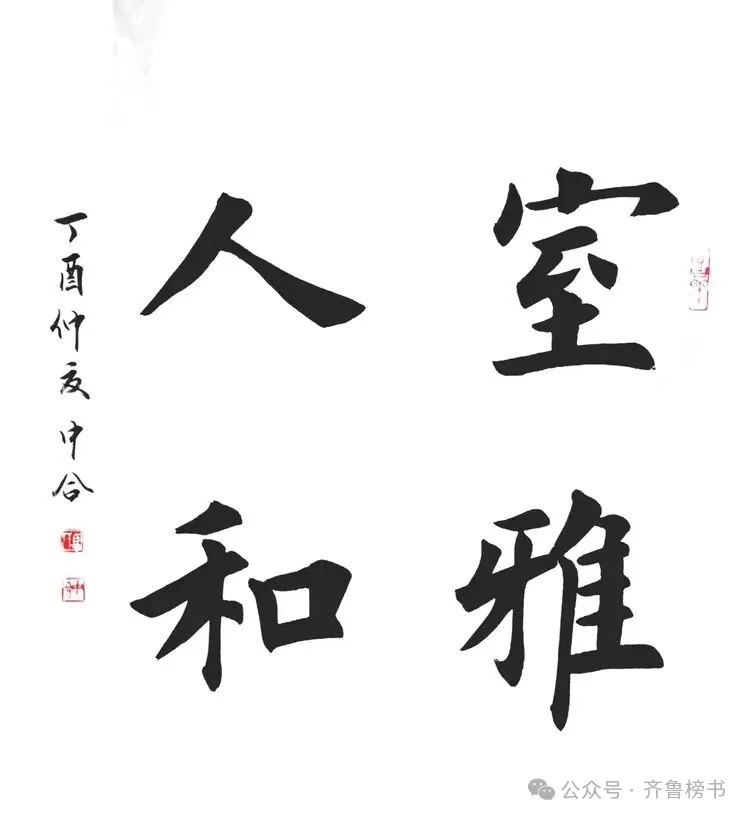 室雅
人和
丁酉仲夏中合
公众号·齐鲁榜书